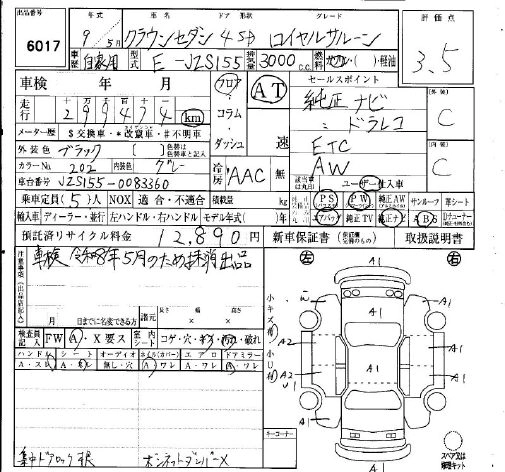 6017
年式 車名 ドア 形状 グレード 評価点
9年 5月 クラウンセダン 4SD ロイヤルサルーン 3.5
車歴 自家用 型式 E-JZS155 排気量 3000 c.c. 燃料 ガソリン・軽油
車検 年 月 フロア AT セールスポイント
走行 129947 4 km コラム 純正ナビ 外装 C
メーター歴 $交換車・*改竄車・#不明車 ダッシュ 速 ドラレコ
外装色 ブラック 色替は色替車と記入 ETC 内装 C
カラーNo. 202 内装色 グレー 冷房 AAC 無 AW
車台番号 JZS155-0083360 ユーザー仕入車
乗車定員(5)人 NOX 適合・不適合 積載量 kg PS PW 純正AW サンルーフ 革シート
輸入車 ディーラー・並行 左ハンドル・右ハンドル モデル年式( )年 エアバッグ 純正TV 純正ナビ ABS
預託済リサイクル料金 12,890 円 新車保証書 取扱説明書
注意事項(出品店記入)
車検 令和8年5月のため抹消出品
月 日までに名変できる方 諸元 長さ 幅 高さ
検査員記入 FW A・X要ス 室内シート コゲ・穴・キズ・汚れ・破れ
ハンドル シート オーディオ ホイル(カバー) エアロ ドアミラー
A・ス A・ 無し・穴 A ワレ A・ワレ A・ワレ
集中ドアロック ボンネットダンパーX
左 右
小キズ有 小凹有
A1
A1
A1
A1
A2
A2
U1
A1
A1
A1
A1
A1
A1
コーナー
スペア又は修理キット